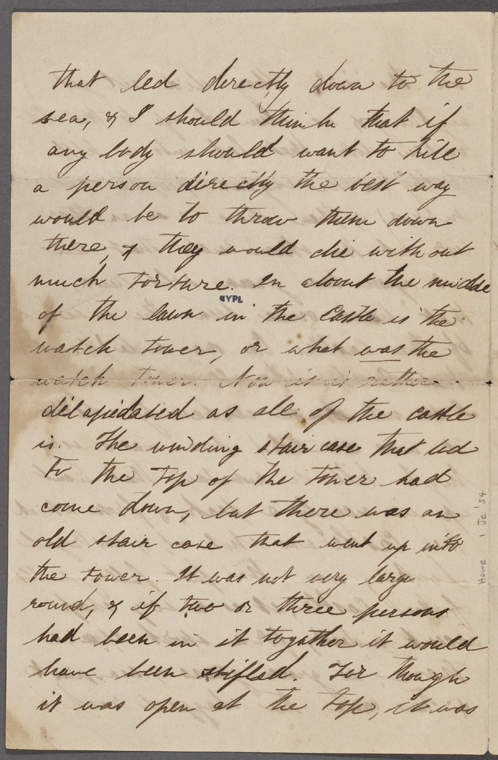 that led directly down to the
sea, & I should think that if
any body should want to kill
a person directly the best way
would be to throw them down
there, & they would die without
much torture. In about the middle
NYPL
of the lawn in the Castle is the
watch tower, or what was the
watch tower. Now it is rather
dilapidated as all of the castle
is. The winding stair case that led
to the top of the tower had
come down, but there was an
old stair case that went up into
the tower. It was not very large
round, & if two or three persons
had been in it together it would
have been stifled. For though
it was open at the top, it was
Home 1 Je '54